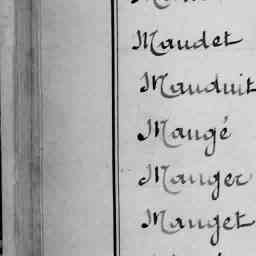 Maudet
Mauduit
Maugé
Mauger
Mauget